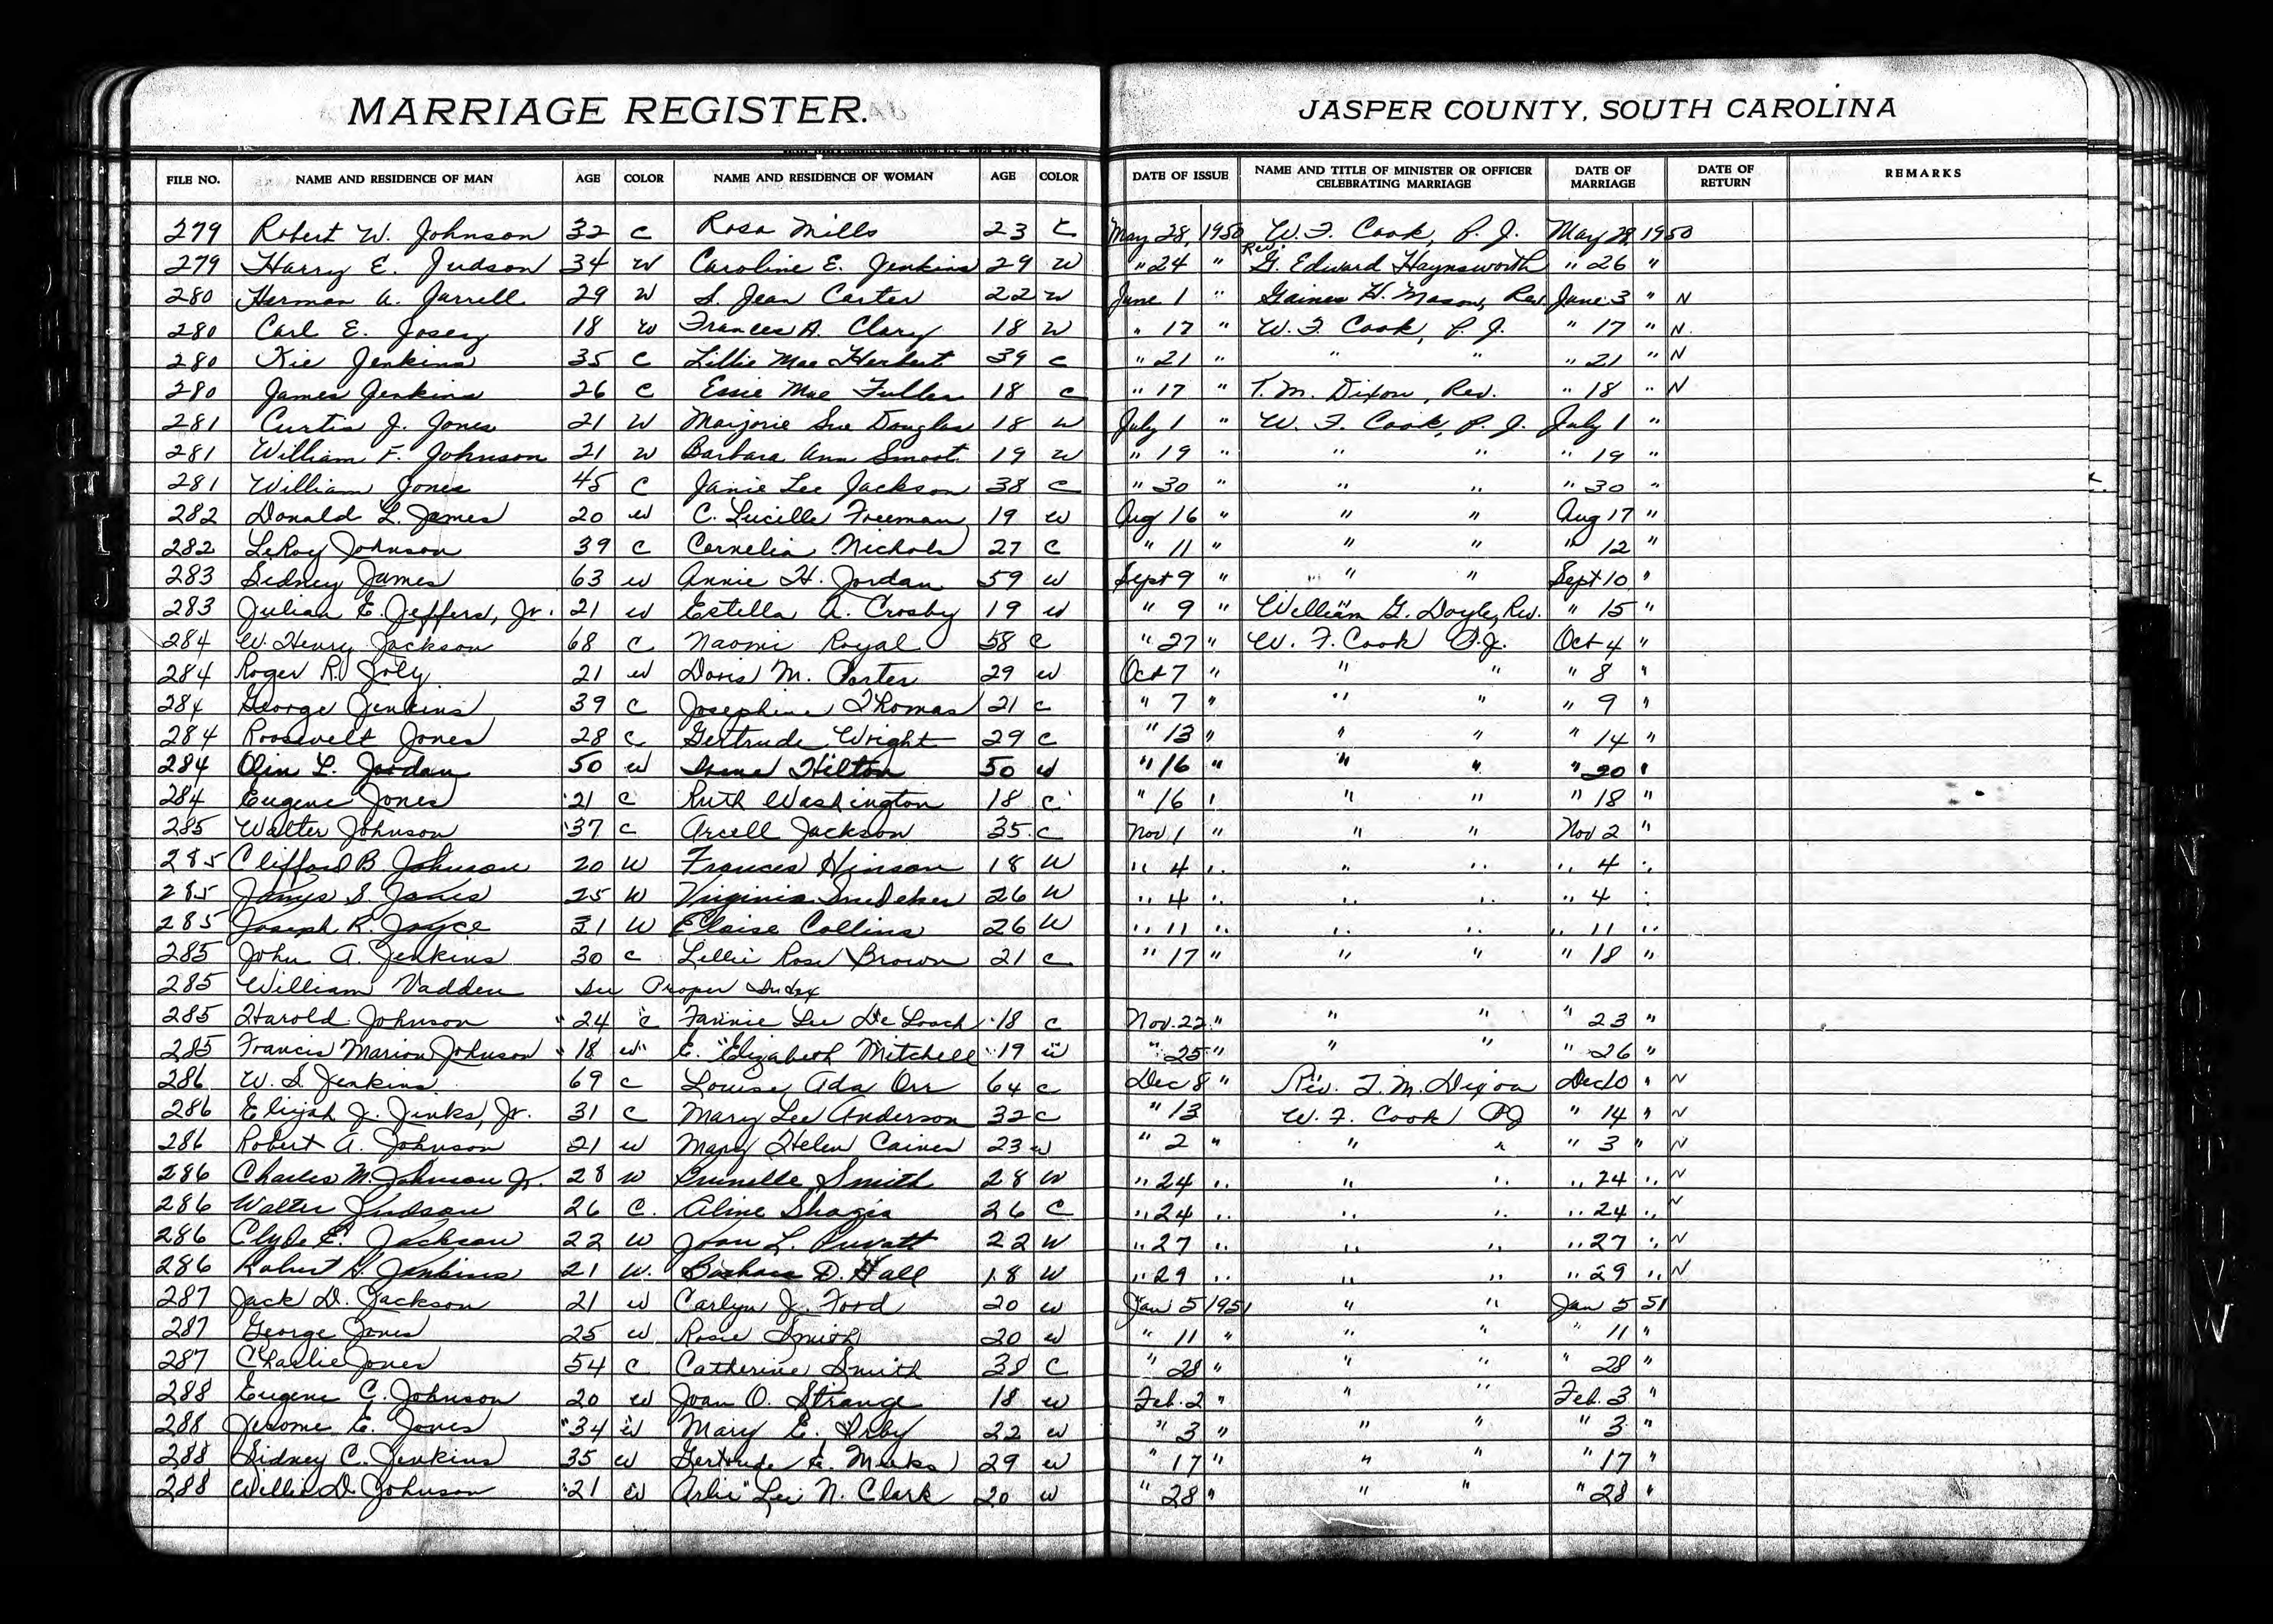 MARRIAGE REGISTER.
JASPER COUNTY, SOUTH CAROLINA
FILE NO. NAME AND RESIDENCE OF MAN AGE COLOR NAME AND RESIDENCE OF WOMAN AGE COLOR DATE OF ISSUE NAME AND TITLE OF MINISTER OR OFFICER CELEBRATING MARRIAGE DATE OF MARRIAGE DATE OF RETURN REMARKS
279 Robert W. Johnson 32 C Rosa Mills 23 C May 28, 1950 W. F. Cook, P. J. May 28, 1950
279 Harry E. Judson 34 W Caroline E. Jenkins 29 W " 24 " Rev. G. Edward Haynsworth " 26 "
280 Herman A. Jarrell 29 W S. Jean Carter 22 W June 1 " Gaines H. Mason, Rev. June 3 " N
280 Carl E. Josey 18 W Frances A. Clary 18 W " 17 " W. F. Cook, P. J. " 17 " N.
280 Kie Jenkins 35 C Lillie Mae Herbert 39 C " 21 " " " " 21 " N
280 James Jenkins 26 C Essie Mae Fuller 18 C " 17 " T. M. Dixon, Rev. " 18 " N
281 Curtis J. Jones 21 W Marjorie Sue Douglas 18 W July 1 " W. F. Cook, P. J. July 1 "
281 William F. Johnson 21 W Barbara Ann Smoot 19 W " 19 " " " " 19 "
281 William Jones 45 C Janie Lee Jackson 38 C " 30 " " " " 30 "
282 Donald L. James 20 W C. Lucille Freeman 19 W Aug 16 " " " Aug 17 "
282 LeRoy Johnson 39 C Cornelia Nichols 27 C " 11 " " " " 12 "
283 Sidney James 63 W Annie H. Jordan 59 W Sept 9 " " " Sept 10 "
283 Julian E. Jeffers, Jr. 21 W Estella A. Crosby 19 W " 9 " William G. Doyle, Rev. " 15 "
284 W. Henry Jackson 68 C Naomi Royal 58 C " 27 " W. F. Cook P.J. Oct 4 "
284 Roger R. Joly 21 W Doris M. Porter 29 W Oct 7 " " " " 8 "
284 George Jenkins 39 C Josephine Thomas 21 C " 7 " " " " 9 "
284 Roosevelt Jones 28 C Gertrude Wright 29 C " 13 " " " " 14 "
284 Olin L. Jordan 50 W Irene Hilton 50 W " 16 " " " " 20 "
284 Eugene Jones 21 C Ruth Washington 18 C " 16 " " " " 18 "
285 Walter Johnson 37 C Arcell Jackson 35 C Nov 1 " " " Nov 2 "
285 Clifford B. Johnson 20 W Frances Hinson 18 W " 4 " " " " 4 "
285 James S. Janis 25 W Virginia Snedeker 26 W " 4 " " " " 4 "
285 Joseph R. Joyce 31 W Eloise Collins 26 W " 11 " " " " 11 "
285 John A. Jenkins 30 C Lillie Rose Brown 21 C " 17 " " " " 18 "
285 William Vadden See Proper Index
285 Harold Johnson 24 C Fannie Lee De Loach 18 C Nov. 22 " " " " 23 "
285 Francis Marion Johnson 18 W E. Elizabeth Mitchell 19 W " 25 " " " " 26 "
286 W. S. Jenkins 69 C Louise Ada Orr 64 C Dec 8 " Rev. T. M. Dixon Dec 10 " N
286 Elijah J. Jinks, Jr. 31 C Mary Lee Anderson 32 C " 13 W. F. Cook PJ " 14 " N
286 Robert A. Johnson 21 W Mary Helen Cainer 23 W " 2 " " " " 3 " N
286 Charles M. Johnson Jr. 28 W Prunelle Smith 28 W " 24 " " " " 24 " N
286 Walter Judson 26 C. Aline 26 C " 24 " " " " 24 " N
286 Clyde E. Jackson 22 W Joan L. Privatt 22 W " 27 " " " " 27 " N
286 Robert H. Jenkins 21 W. Barbara D. Hall 18 W " 29 " " " " 29 " N
287 Jack D. Jackson 21 W Carlyn J. Ford 20 W Jan 5 1951 " " Jan 5 51
287 George Jones 25 W Rosie Smith 20 W " 11 " " " " 11 "
287 Charlie Jones 54 C Catherine Smith 38 C " 28 " " " " 28 "
288 Eugene C. Johnson 20 W Joan O. Strange 18 W Feb. 2 " " " Feb. 3 "
288 Jerome E. Jones 34 W Mary E. Irby 22 W " 3 " " " " 3 "
288 Sidney C. Jenkins 35 W Gertrude E. Meeks 29 W " 17 " " " " 17 "
288 Willie D. Johnson 21 W Arlie Lee N. Clark 20 W " 28 " " " " 28 "